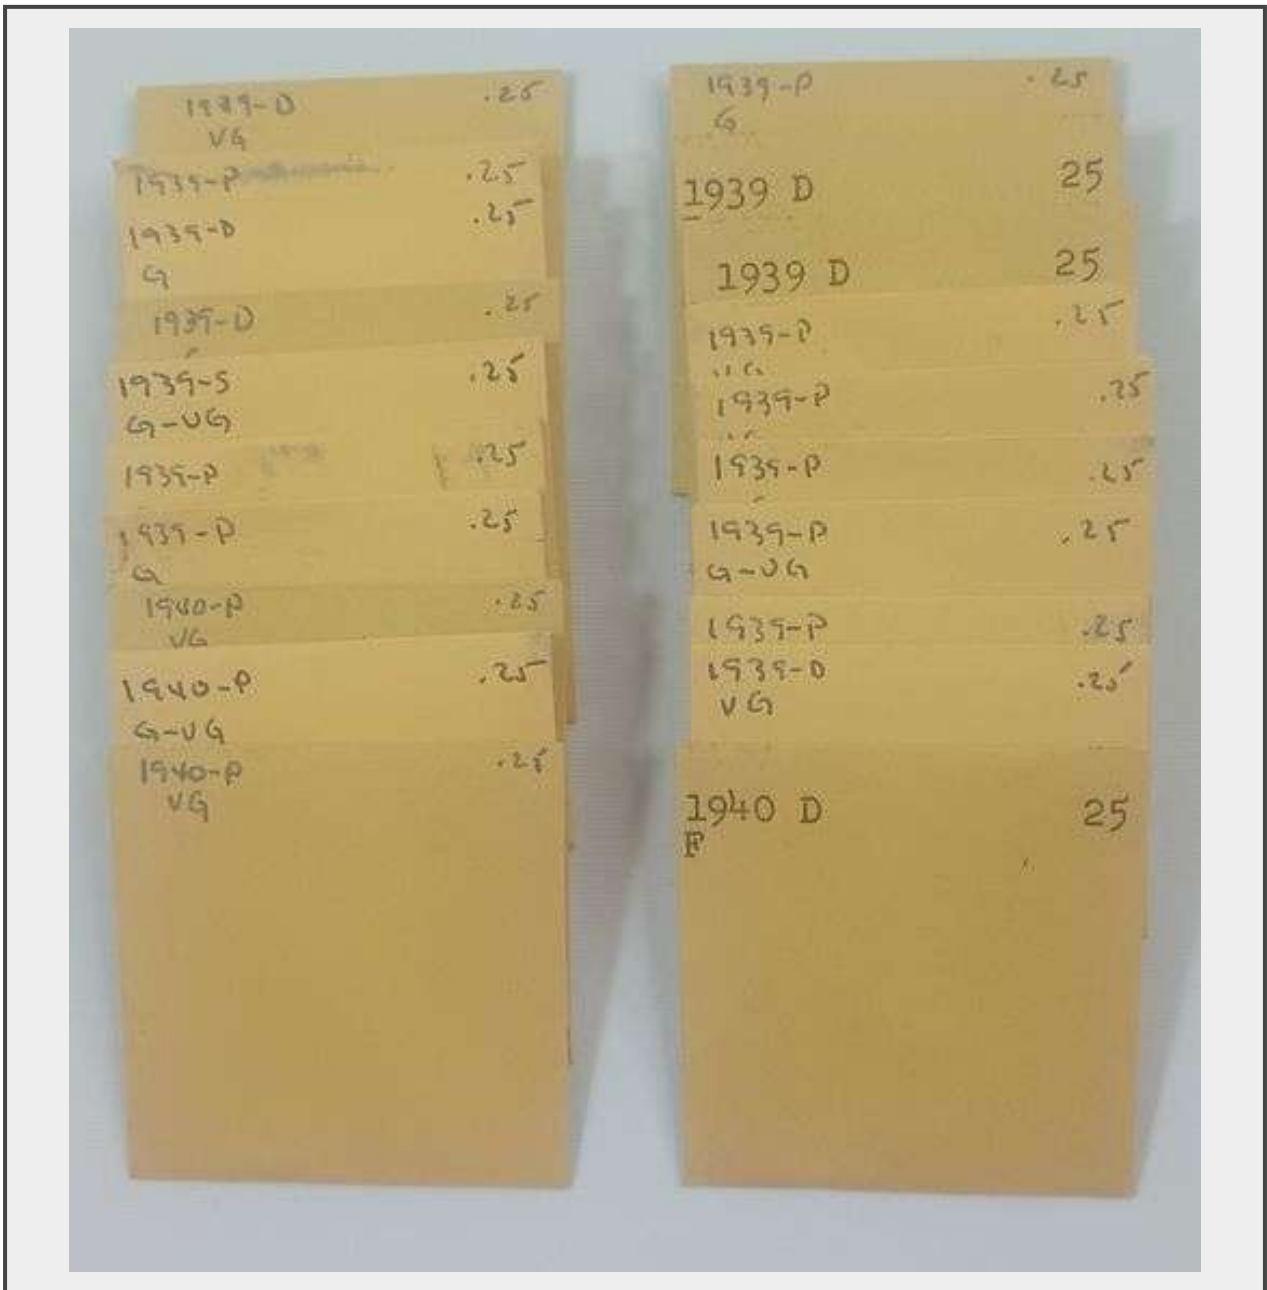 1939-D .25
VG
1939-P .25
1939-D .25
G
1939-D .25
1939-S .25
G-VG
1939-P .25
1939-P .25
G
1940-P .25
VG
1940-P .25
G-VG
1940-P .25
VG
1939-P .25
G
1939 D 25
1939 D 25
1939-P .25
VG
1939-P .25
1939-P .25
1939-P .25
G-VG
1939-P .25
1939-D .25
VG
1940 D 25
F